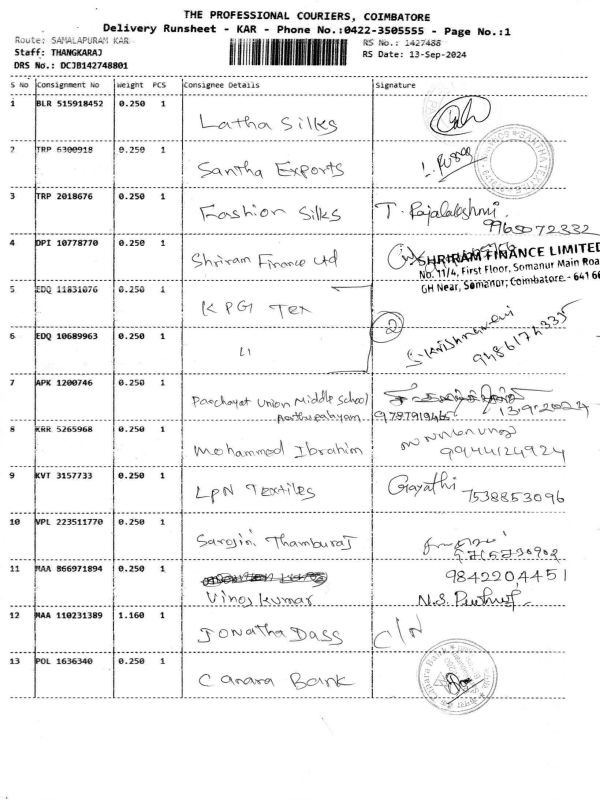 THE PROFESSIONAL COURIERS, COIMBATORE
Delivery Runsheet - KAR - Phone No.:0422-3505555 - Page No.:1
Route: SAMALAPURAM KAR
RS No.: 1427488
Staff: THANGKARAJ
RS Date: 13-Sep-2024
DRS No.: DCJB142748801
S No Consignment No Weight PCS Consignee Details Signature
1 BLR 515918452 0.250 1 Latha Silks
2 TRP 6300918 0.250 1 Santha Exports
3 TRP 2018676 0.250 1 Fashion Silks T. Rajalakshmi
9965072332
4 DPI 10778770 0.250 1 Shriram Finance Ltd
SHRIRAM FINANCE LIMITED
No. 11/4, First Floor, Somanur Main Road
GH Near, Somanur, Coimbatore - 641 66
5 EDQ 11831076 0.250 1 KPG Tex
2
6 EDQ 10689963 0.250 1 S. Krishnaveni
9486174335
7 APK 1200746 0.250 1 Panchayat Union Middle School
13.9.2024
8 KRR 5265968 0.250 1 Mohammed Ibrahim
9944124924
9 KVT 3157733 0.250 1 LPN Textiles Gayathi 7538853096
10 VPL 223511770 0.250 1 Sarojini Thamburaj
11 MAA 866971894 0.250 1 9842204451
Vinoskumar N.S.
12 MAA 110231389 1.160 1 Jonatha Dass C/N
13 POL 1636340 0.250 1 Canara Bank